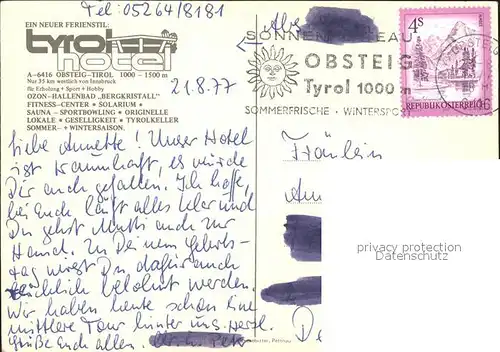 Tel: 05264/8181
EIN NEUER FERIENSTIL:
tyrol
hotel
A-6416 OBSTEIG-TIROL 1000 - 1500 m
Nur 35 km westlich von Innsbruck
für Erholung + Sport + Hobby
OZON-HALLENBAD „BERGKRISTALL"
FITNESS-CENTER • SOLARIUM •
SAUNA - SPORTBOWLING • ORIGINELLE
LOKALE • GESELLIGKEIT • TYROLKELLER
SOMMER- + WINTERSAISON.
21.8.77
OBSTEIG
Tyrol 1000 m
SOMMERFRISCHE · WINTERSPORT
4s
REPUBLIK ÖSTERREICH
Liebe Annette! Unser Hotel
ist traumhaft, es würde
Dir auch gefallen. Ich hoffe,
bei Euch läuft alles klar und
Du gehst Mutti auch zur
Hand. Zu Deinem Geburts-
tag wirst Du dafür auch
reichlich belohnt werden.
Wir haben heute schon eine
mittlere Tour hinter uns. Herzl.
Grüße Euch allen.
Fräulein
privacy protection
Datenschutz